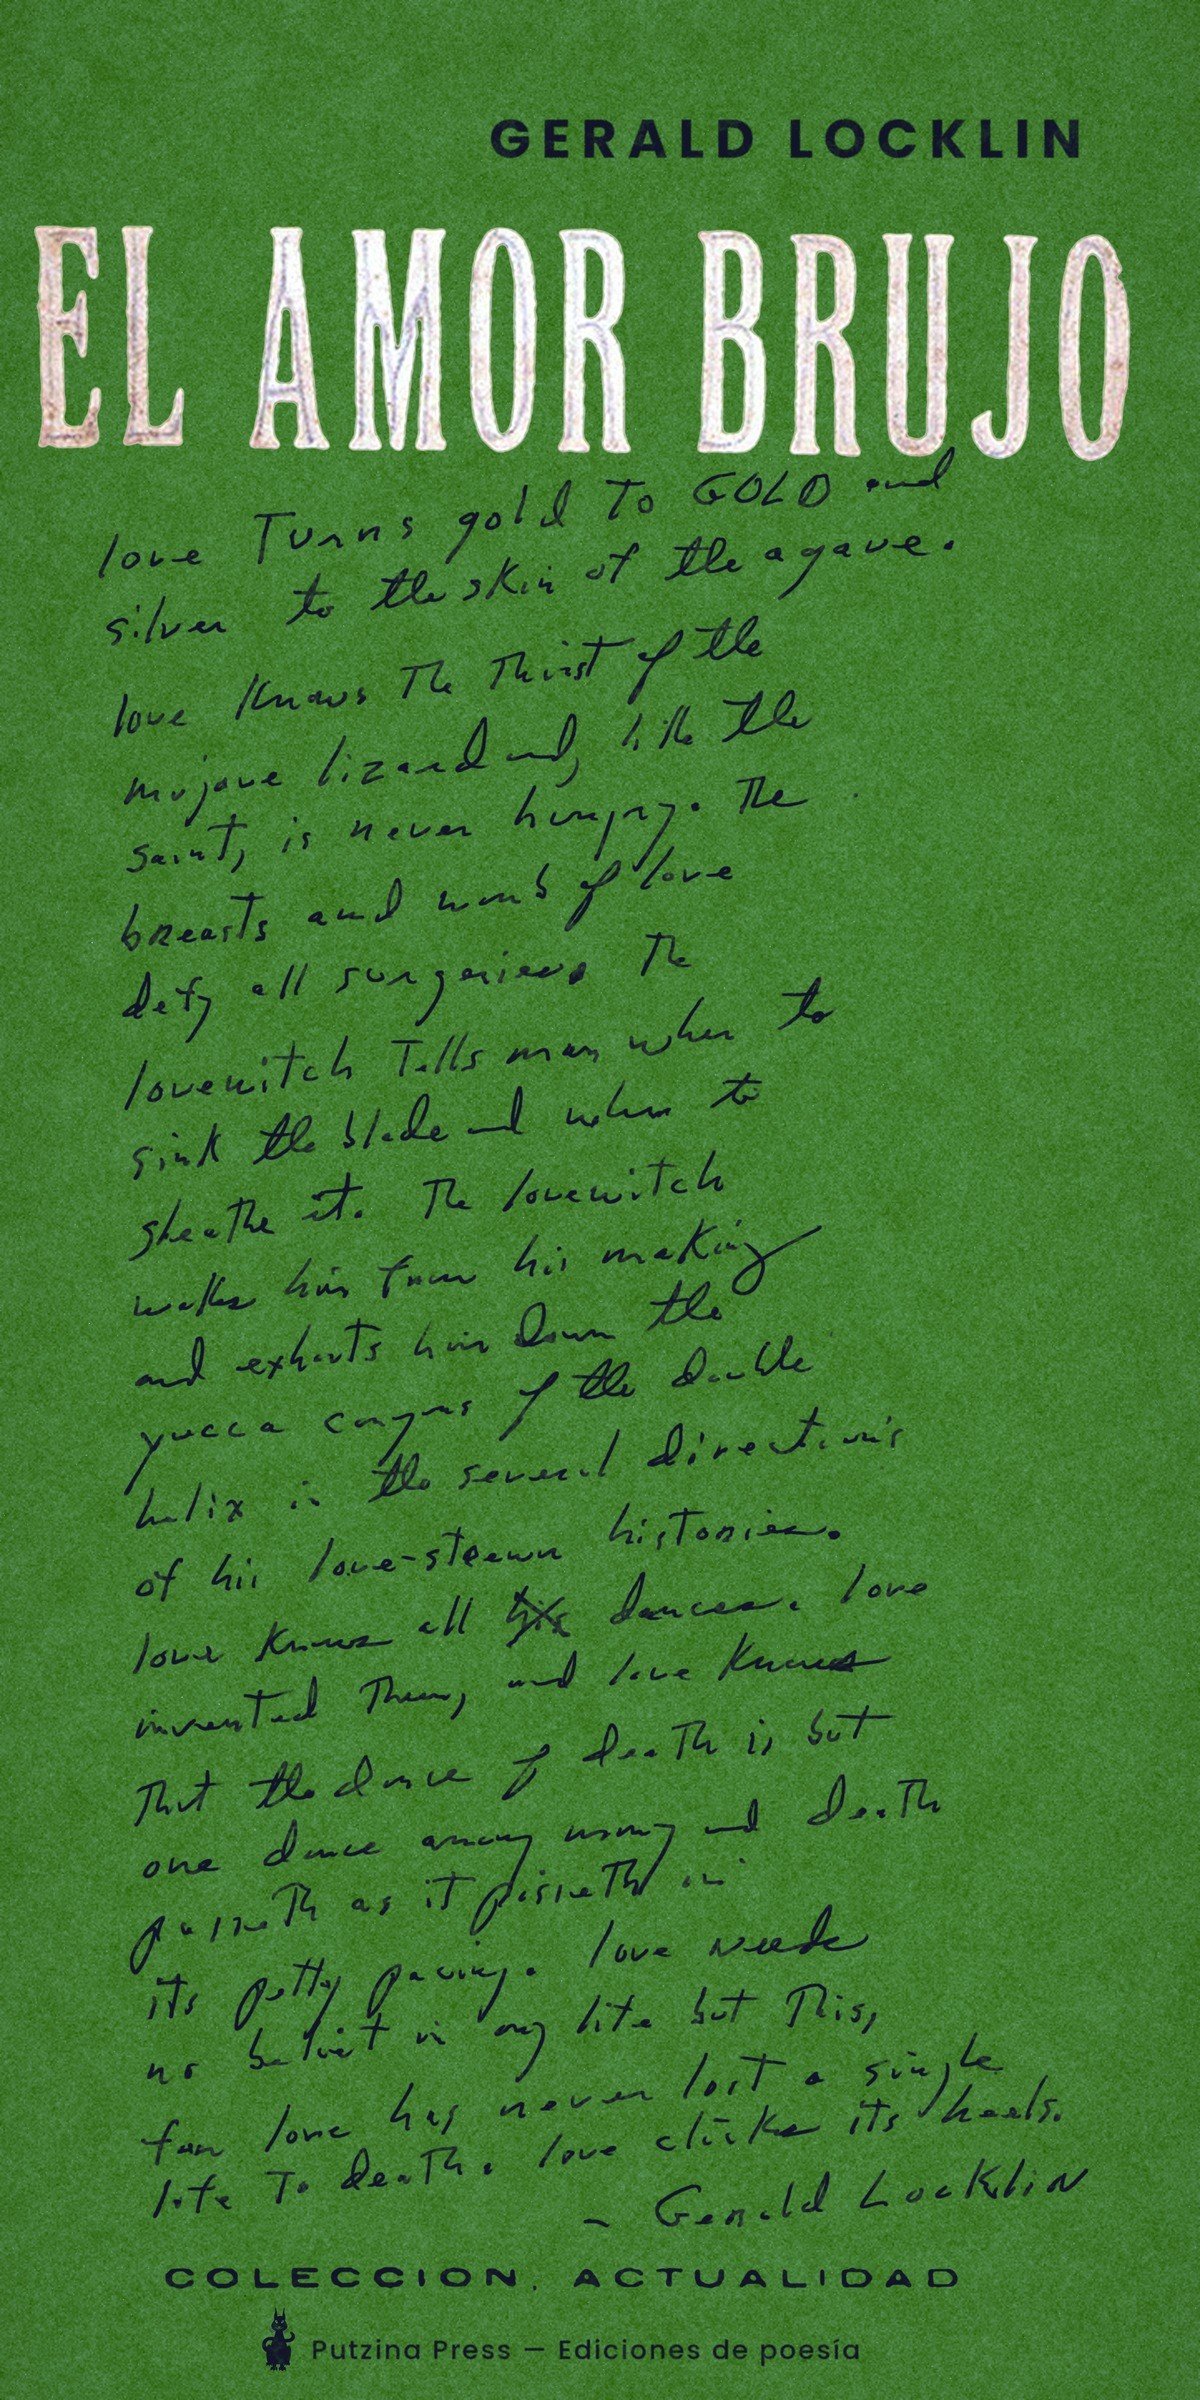 GERALD LOCKLIN
EL AMOR BRUJO
love Turns gold To GOLD and
silver to the skin of the agave.
love knows The Thirst of the
mojave lizard and, like the
saint, is never hungry. The
breasts and womb of love
defy all surgeries. The
lovewitch Tells man when to
sink the blade and when to
sheathe it. The lovewitch
wakes him from his making
and exhorts him down the
yucca canyons of the double
helix in the several directions
of his love-strewn histories.
love knows all his dances. love
invented Them, and love knows
That the dance of death is but
one dance among many and death
passeth as it pisseth in
its petty pacing. love needs
no belief in any life but This,
for love has never lost a single
life To death. love clicks its heels.
- Gerald Locklin
COLECCION. ACTUALIDAD
Putzina Press — Ediciones de poesía